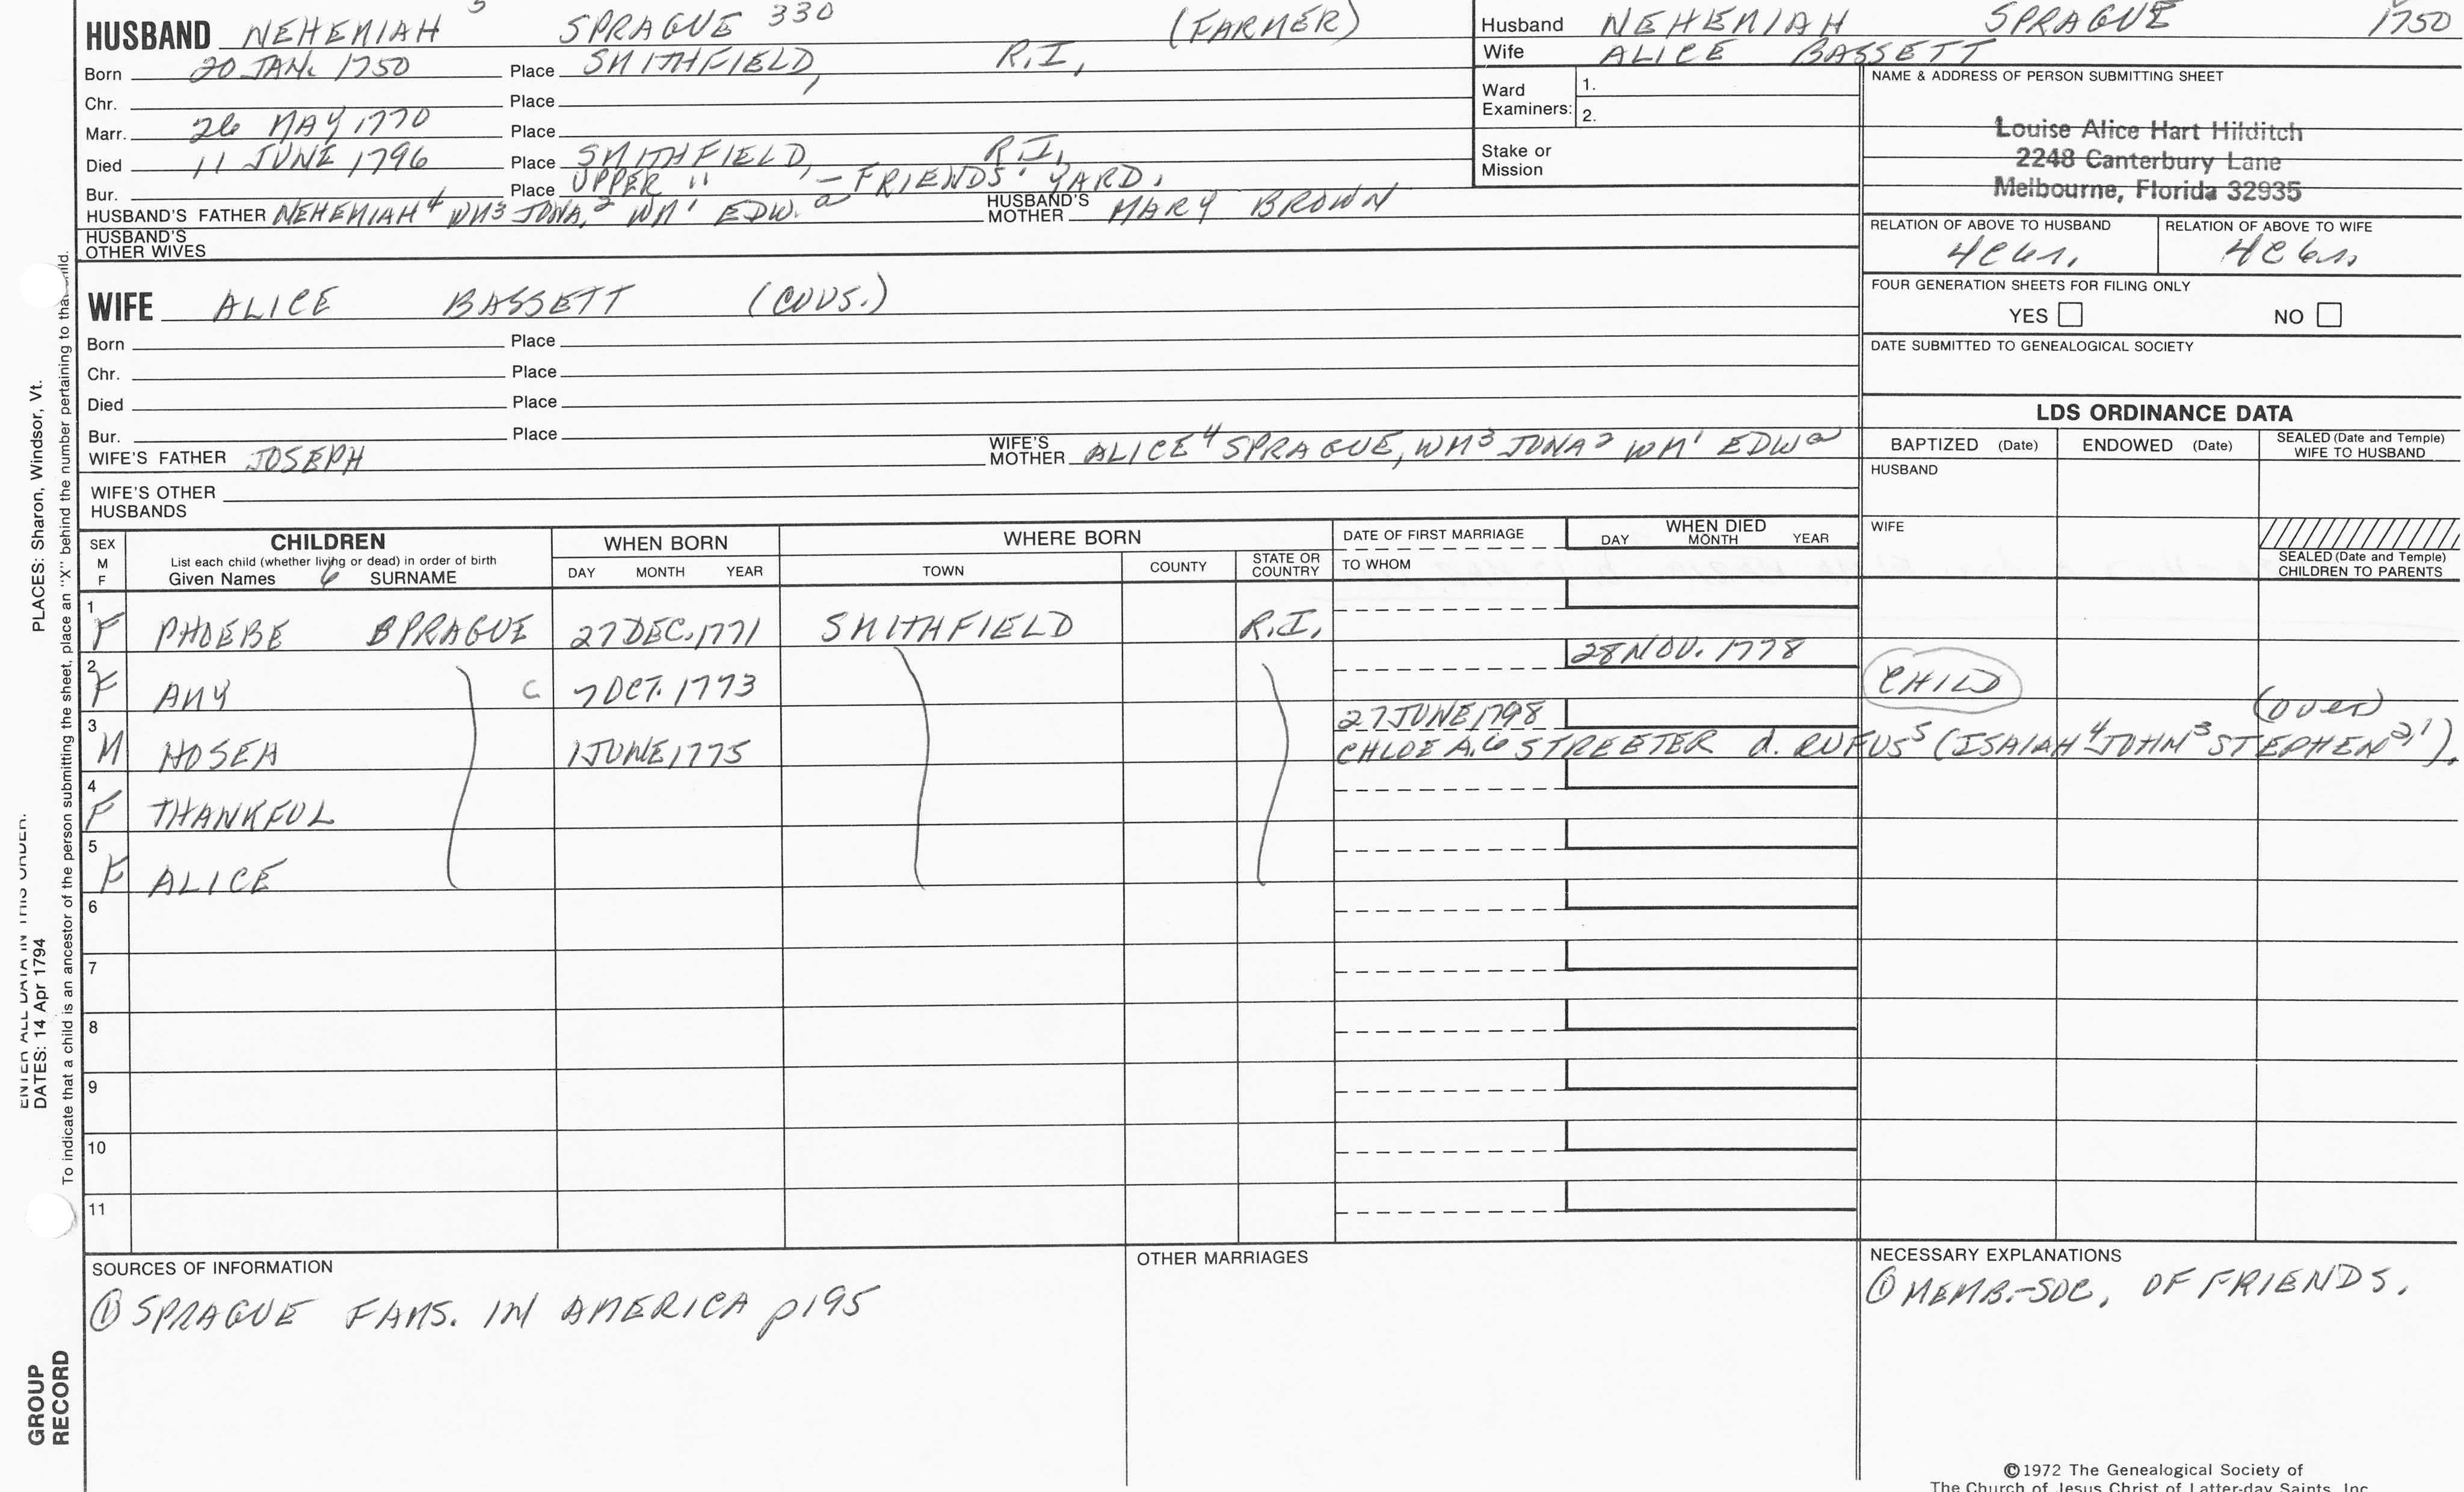 HUSBAND NEHEMIAH 5 SPRAGUE 330 (FARMER)
Born 20 JAN. 1750 Place SMITHFIELD, R.I.,
Chr. Place
Marr. 26 MAY 1770 Place
Died 11 JUNE 1796 Place SMITHFIELD, R.I.,
Bur. Place UPPER " - FRIENDS' YARD.
HUSBAND'S FATHER NEHEMIAH4 WM3 JONA,2 WM1 EDW.a HUSBAND'S MOTHER MARY BROWN
HUSBAND'S OTHER WIVES
WIFE ALICE BASSETT (COUS.)
Born Place
Chr. Place
Died Place
Bur. Place
WIFE'S FATHER JOSEPH WIFE'S MOTHER ALICE4 SPRAGUE, WM3 JONA2 WM1 EDWa
WIFE'S OTHER HUSBANDS
Husband NEHEMIAH SPRAGUE 1750
Wife ALICE BASSETT
Ward Examiners: 1.
2.
Stake or Mission
NAME & ADDRESS OF PERSON SUBMITTING SHEET
Louise Alice Hart Hilditch
2248 Canterbury Lane
Melbourne, Florida 32935
RELATION OF ABOVE TO HUSBAND RELATION OF ABOVE TO WIFE
FOUR GENERATION SHEETS FOR FILING ONLY
YES NO
DATE SUBMITTED TO GENEALOGICAL SOCIETY
LDS ORDINANCE DATA
BAPTIZED (Date) ENDOWED (Date) SEALED (Date and Temple) WIFE TO HUSBAND
HUSBAND
WIFE
SEALED (Date and Temple) CHILDREN TO PARENTS
SEX M F CHILDREN WHEN BORN WHERE BORN DATE OF FIRST MARRIAGE WHEN DIED
List each child (whether living or dead) in order of birth DAY MONTH YEAR
Given Names 6 SURNAME DAY MONTH YEAR TOWN COUNTY STATE OR COUNTRY TO WHOM
1 F PHOEBE SPRAGUE 27 DEC. 1771 SMITHFIELD R.I.
2 F AMY C 7 OCT. 1773 28 NOV. 1778 CHILD
(over)
3 M HOSEA 1 JUNE 1775 27 JUNE 1798
CHLOE A.6 STREETER d. RUFUS5 (ISAIAH4 JOHN3 STEPHEN2,1).
4 F THANKFUL
5 F ALICE
6
7
8
9
10
11
SOURCES OF INFORMATION
① SPRAGUE FAMS. IN AMERICA p195
OTHER MARRIAGES
NECESSARY EXPLANATIONS
① MEMB.-SOC. OF FRIENDS.
©1972 The Genealogical Society of
The Church of Jesus Christ of Latter-day Saints, Inc.
DATES: 14 Apr 1794
PLACES: Sharon, Windsor, Vt.
To indicate that a child is an ancestor of the person submitting the sheet, place an "X" behind the number pertaining to that child.
GROUP
RECORD